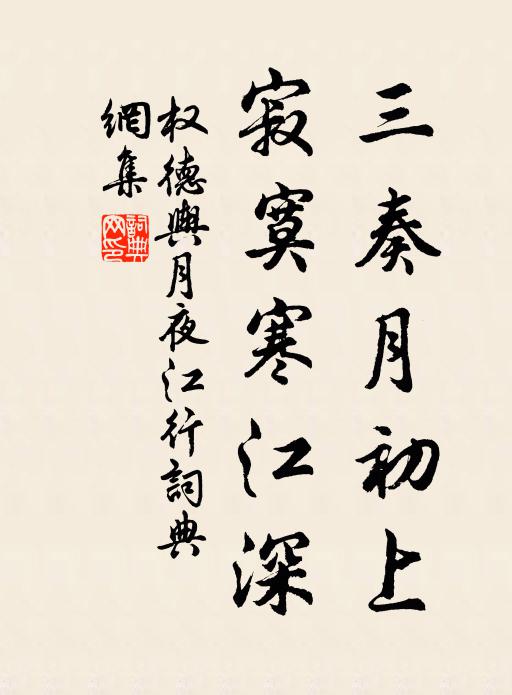 三奏月初上
寂寞寒江深
权德輿月夜江行詞典
網集
詞典網印